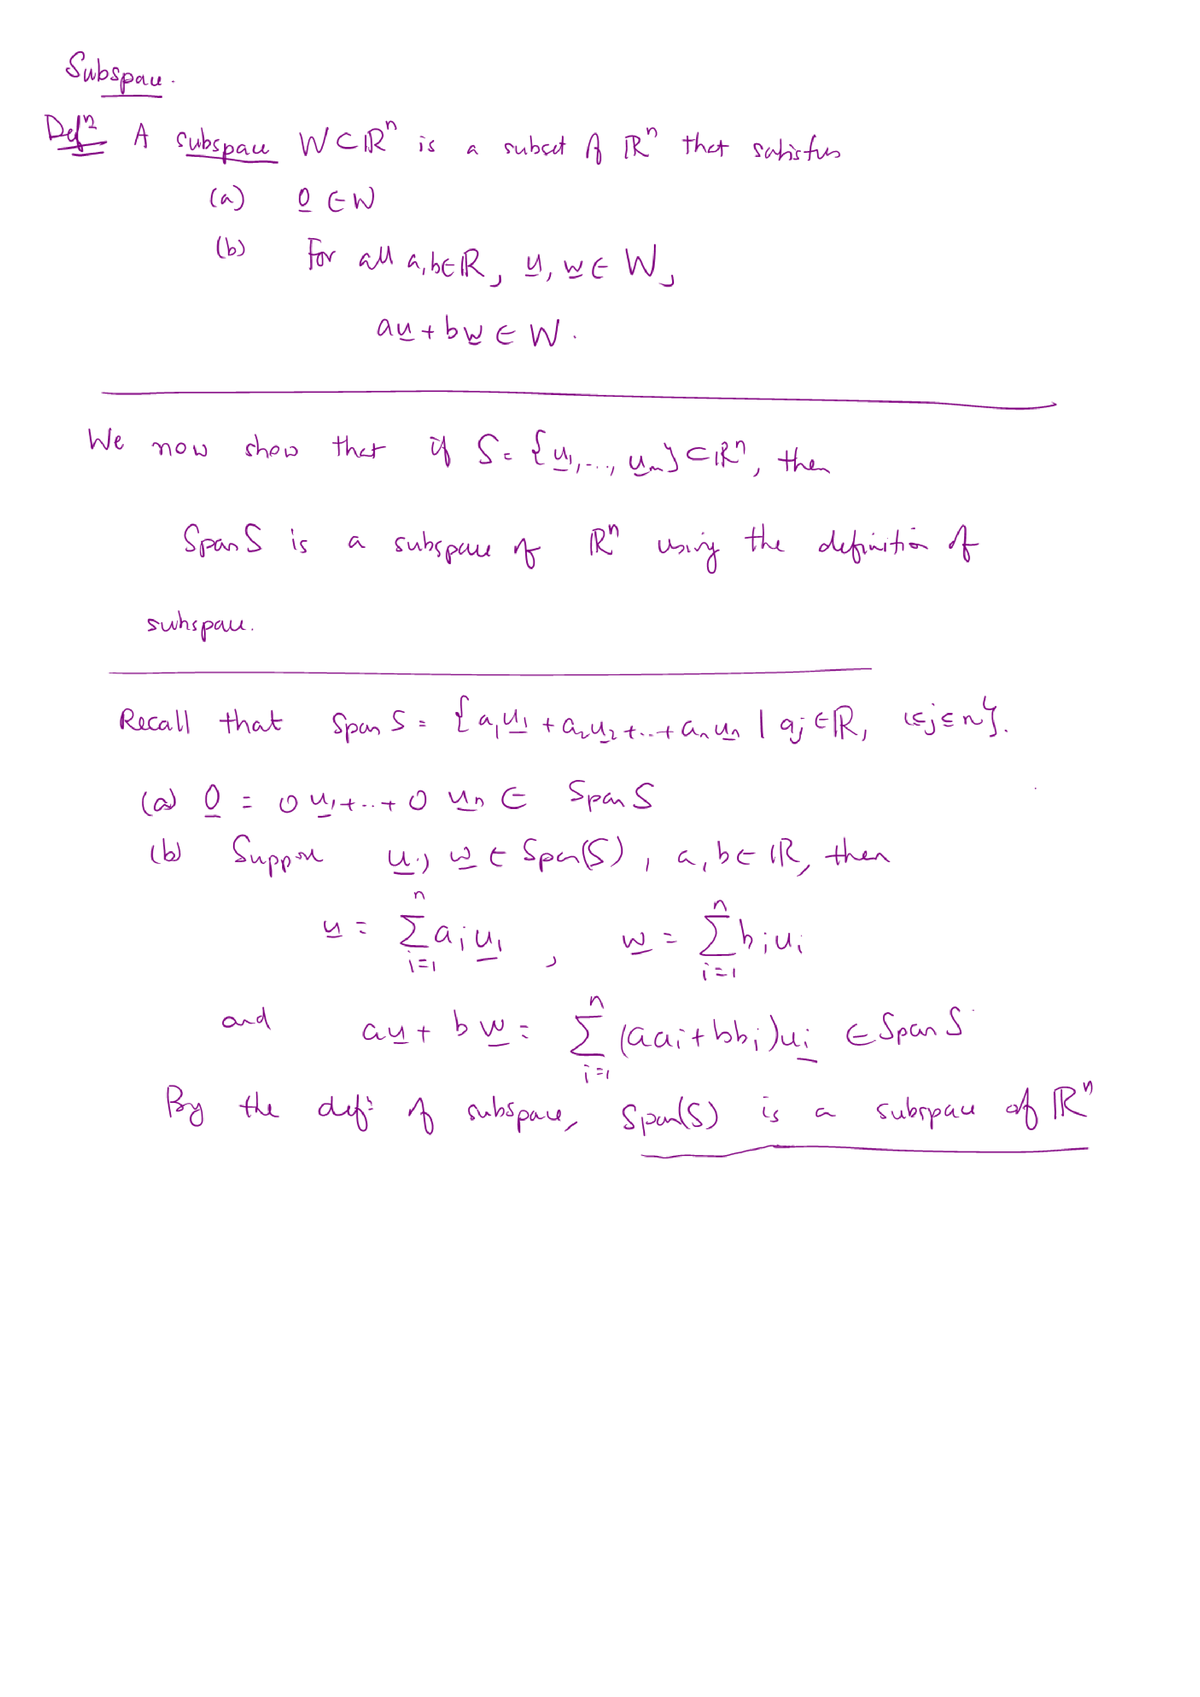 Subspace.
Defⁿ A subspace W⊂ℝⁿ is a subset of ℝⁿ that satisfies
(a) 0 ∈ W
(b) For all a,b∈ℝ, u, w ∈ W,
au + bw ∈ W.
We now show that if S = {u₁,..., uₘ} ⊂ ℝⁿ, then
Span S is a subspace of ℝⁿ using the definition of
subspace.
Recall that Span S = {a₁u₁ + a₂u₂ + .. + aₙuₙ | aⱼ ∈ ℝ, 1≤j≤n}.
(a) 0 = 0u₁ + .. + 0uₙ ∈ Span S
(b) Suppose u, w ∈ Span(S), a, b ∈ ℝ, then
u = ∑ᵢ₌₁ⁿ aᵢuᵢ, w = ∑ᵢ₌₁ⁿ bᵢuᵢ
and au + bw = ∑ᵢ₌₁ⁿ (aaᵢ + bbᵢ)uᵢ ∈ Span S
By the defⁿ of subspace, Span(S) is a subspace of ℝⁿ